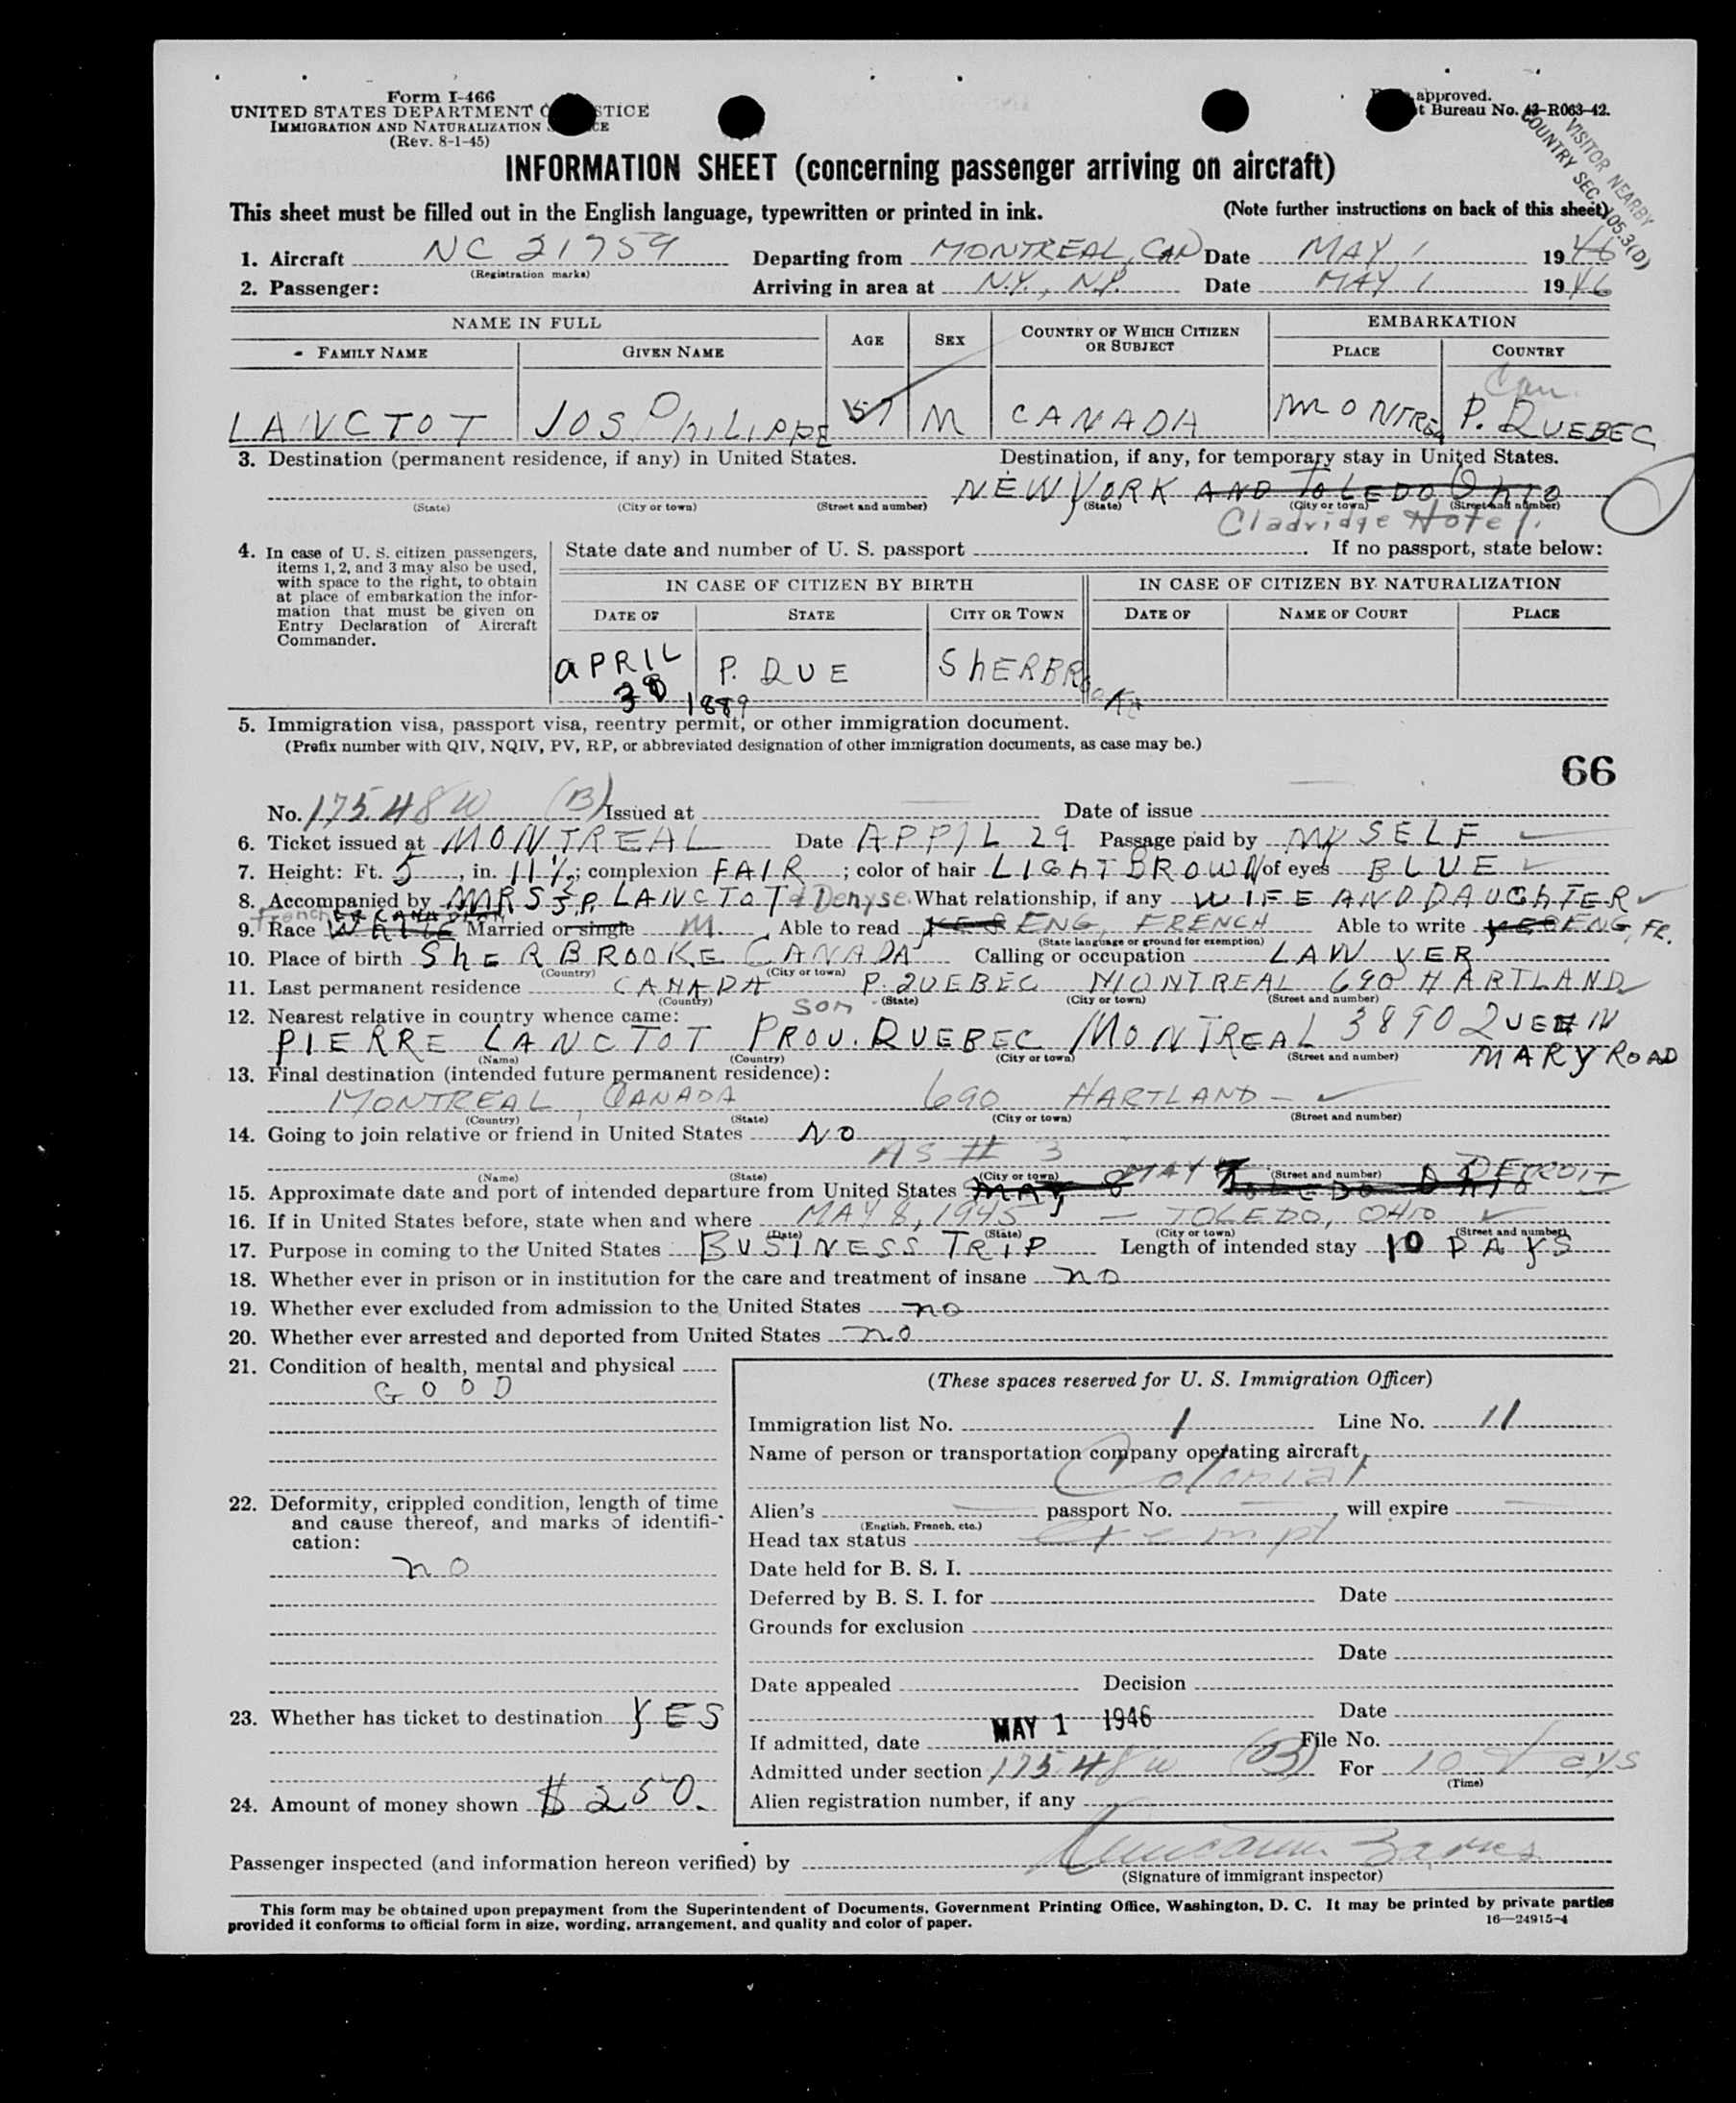 Form I-466
UNITED STATES DEPARTMENT STICE
IMMIGRATION AND NATURALIZATION CE
(Rev. 8-1-45)
approved.
t Bureau No. 43-R063-42.
VISITOR NEARBY
COUNTRY SEC. 105.3(D)
INFORMATION SHEET (concerning passenger arriving on aircraft)
This sheet must be filled out in the English language, typewritten or printed in ink. (Note further instructions on back of this sheet)
1. Aircraft NC 21759 Departing from MONTREAL, CAN Date MAY 1 1946
(Registration marks)
2. Passenger: Arriving in area at N.Y., N.Y. Date MAY 1 1946
NAME IN FULL AGE SEX COUNTRY OF WHICH CITIZEN OR SUBJECT EMBARKATION
FAMILY NAME GIVEN NAME PLACE COUNTRY
Can.
LANCTOT JOS PhILIPPE 57 M CANADA MONTREA P. QUEBEC
3. Destination (permanent residence, if any) in United States. Destination, if any, for temporary stay in United States.
NEW YORK AND TOLEDO OhIO
(State) (City or town) (Street and number) (State) (City or town) (Street and number)
Cladridge Hotel.
4. In case of U. S. citizen passengers, items 1, 2, and 3 may also be used, with space to the right, to obtain at place of embarkation the information that must be given on Entry Declaration of Aircraft Commander.
State date and number of U. S. passport If no passport, state below:
IN CASE OF CITIZEN BY BIRTH IN CASE OF CITIZEN BY NATURALIZATION
DATE OF STATE CITY OR TOWN DATE OF NAME OF COURT PLACE
APRIL 30 1889 P. QUE ShERBROOKE
5. Immigration visa, passport visa, reentry permit, or other immigration document.
(Prefix number with QIV, NQIV, PV, RP, or abbreviated designation of other immigration documents, as case may be.)
66
No. 175.48 W (B) Issued at Date of issue
6. Ticket issued at MONTREAL Date APPIL 29 Passage paid by MYSELF
7. Height: Ft. 5, in. 11½; complexion FAIR; color of hair LIGhT BROWN of eyes BLUE
8. Accompanied by MRS J.P. LANCTOT & Denyse What relationship, if any WIFE AND DAUGhTER
French
9. Race WhITE Married or single M. Able to read YES ENG, FRENCH Able to write YES ENG, FR.
(State language or ground for exemption)
10. Place of birth ShERBROOKE CANADA Calling or occupation LAWYER
(Country) (City or town)
11. Last permanent residence CANADA P. QUEBEC MONTREAL 690 HARTLAND
(Country) (State) (City or town) (Street and number)
12. Nearest relative in country whence came: son
PIERRE LANCTOT PROV. QUEBEC MONTREAL 3890 QUEEN MARY ROAD
(Name) (Country) (City or town) (Street and number)
13. Final destination (intended future permanent residence):
MONTREAL, CANADA 690 HARTLAND -
(Country) (State) (City or town) (Street and number)
14. Going to join relative or friend in United States NO
AS # 3
(Name) (State) (City or town) (Street and number)
15. Approximate date and port of intended departure from United States MAY 8 MAY 7 TOLEDO OhIO DETROIT
16. If in United States before, state when and where MAY 8, 1945 - TOLEDO, OHIO
(Date) (State) (City or town) (Street and number)
17. Purpose in coming to the United States BUSINESS TRIP Length of intended stay 10 DAYS
18. Whether ever in prison or in institution for the care and treatment of insane no
19. Whether ever excluded from admission to the United States no
20. Whether ever arrested and deported from United States no
21. Condition of health, mental and physical
GOOD
22. Deformity, crippled condition, length of time and cause thereof, and marks of identification:
no
23. Whether has ticket to destination YES
24. Amount of money shown $250.
(These spaces reserved for U. S. Immigration Officer)
Immigration list No. 1 Line No. 11
Name of person or transportation company operating aircraft,
Colonial
Alien's passport No. , will expire
(English, French, etc.)
Head tax status Exempt
Date held for B. S. I.
Deferred by B. S. I. for Date
Grounds for exclusion
Date
Date appealed Decision
Date
If admitted, date MAY 1 1946 File No.
Admitted under section 175.48 W (B) For 10 days
(Time)
Alien registration number, if any
Passenger inspected (and information hereon verified) by
(Signature of immigrant inspector)
This form may be obtained upon prepayment from the Superintendent of Documents, Government Printing Office, Washington, D. C. It may be printed by private parties
provided it conforms to official form in size, wording, arrangement, and quality and color of paper. 16—24915-4